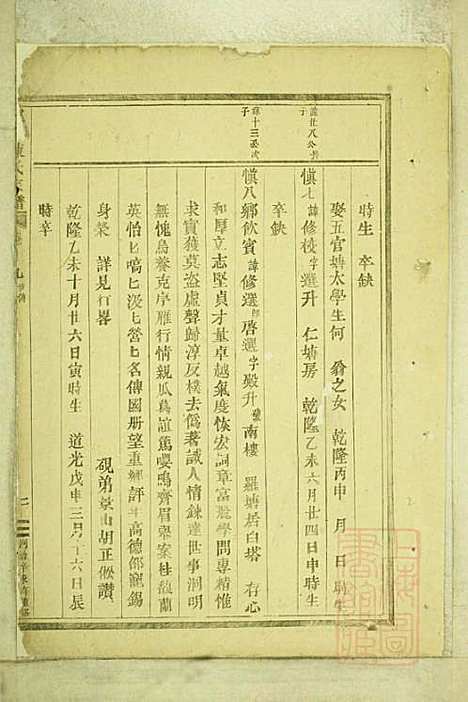 時生　卒缺
娶五官塘太學生何　翁之女　乾隆丙申　月　日　時生
諱廿八公長子
慎七諱修梭字選升　仁塘房　乾隆乙未六月廿四日申時生
卒缺
諱十三公次子
慎八鄉飲賓諱修選郎啓選字殿升號南樓　羅塘居白塔　存心
和厚立志堅貞才量卓越氣度恢宏詞章富麗學問專精惟
求實獲莫盜虛聲歸淳反樸去僞著誠人情鍊達世事洞明
無愧烏養克序雁行情親瓜葛誼篤嚶鳴齊眉舉案桂馥蘭
英怡匕嗃匕汲匕營匕名傳國册望重鄉評年高德邵寵錫
身榮　詳見行畧　硯弟景山胡正倣讚
乾隆乙未十月廿六日寅時生　道光戊申三月十六日辰
時卒